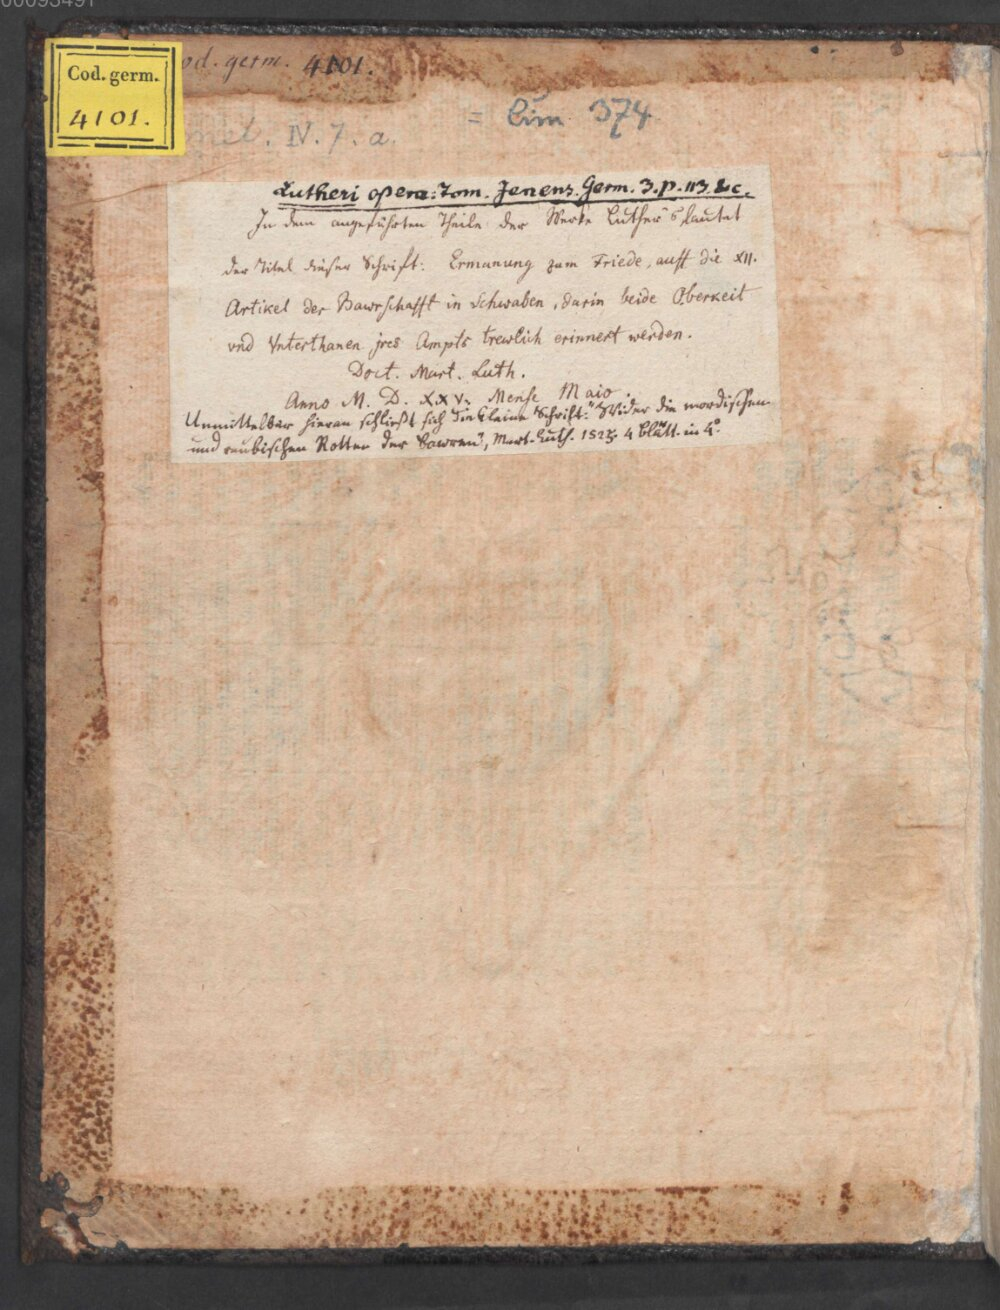 00093491
Cod. germ.
4101.
od. germ. 4101.
= Cim 374
N. 7. a.
Lutheri opera: Tom. Jenens. Germ. 3. p. 113. &c.
In dem angeführten Theile der Werke Luther's lautet
der Titel dieser Schrift: Ermanung zum Friede, auff die XII.
Artikel der Bawrschafft in Schwaben, darin beide Oberkeit
vnd Vnterthanen jres Ampts trewlich erinnert werden.
Doct. Mart. Luth.
Anno M. D. XXV. Mense Maio.
Unmittelbar hieran schließt sich die kleine Schrift: "Wider die mordischen
und reubischen Rotten der Bawren", Mart. Luth. 1525. 4 Blätt. in 4°.